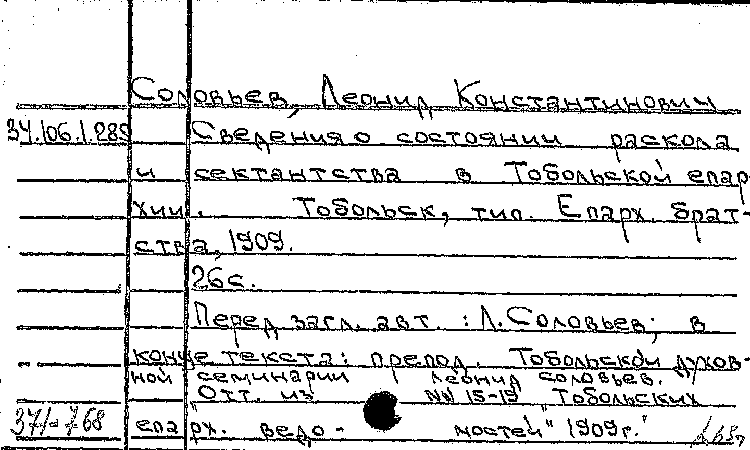 Соловьев, Леонид Константинович
34.106.1.285 Сведения о состоянии раскола
и сектантства в Тобольской епар-
хии. Тобольск, тип. Епарх. брат-
ства, 1909.
26с.
Перед загл. авт.: Л.Соловьев; в
конце текста: препод. Тобольской духов-
ной семинарии Леонид Соловьев.
"Отт. из NN 15-19 Тобольских
371-768 епарх. ведо- мостей" 1909г."